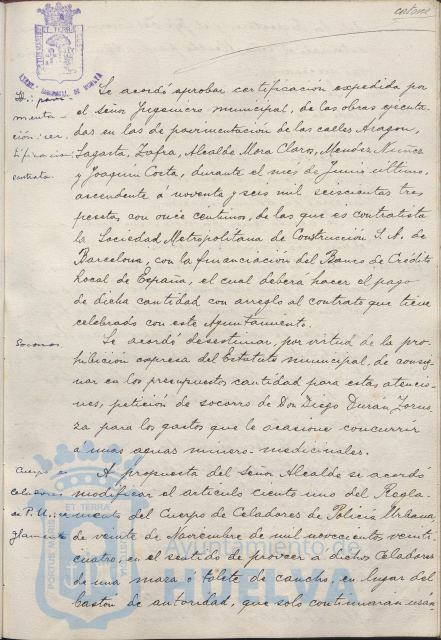 catorce
Se acordó aprobar certificación expedida por
el señor Ingeniero municipal, de las obras ejecuta-
das en las de pavimentación de las calles Aragon,
Sagasta, Zafra, Alcalde Mora Claros, Mendez Nuñez
y Joaquin Costa, durante el mes de Junio ultimo,
ascendente á noventa y seis mil seiscientas tres
pesetas, con once centimos, de las que es contratista
la Sociedad Metropolitana de Construcción S. A. de
Barcelona, con la financiación del Banco de Crédito
Local de España, el cual deberá hacer el pago
de dicha cantidad con arreglo al contrato que tiene
celebrado con este Ayuntamiento.
Socorros
Se acordó desestimar, por virtud de la pro-
hibición expresa del Estatuto municipal, de consig-
nar en los presupuestos cantidad para estas atencio-
nes, petición de socorro de Don Diego Durán
para los gastos que le ocasione concurrir
a unas aguas minero-medicinales.
Cuerpo de
Celadores
de P. U.
glamento
A propuesta del Señor Alcalde se acordó
modificar el articulo ciento uno del Regla-
mento del Cuerpo de Celadores de Policia Urbana
de veinte de Noviembre de mil novecientos veinti-
cuatro, en el sentido de proveer á dichos Celadores
de una maza o tolete de caucho, en lugar del
bastón de autoridad, que solo continuarán usán
HUELVA